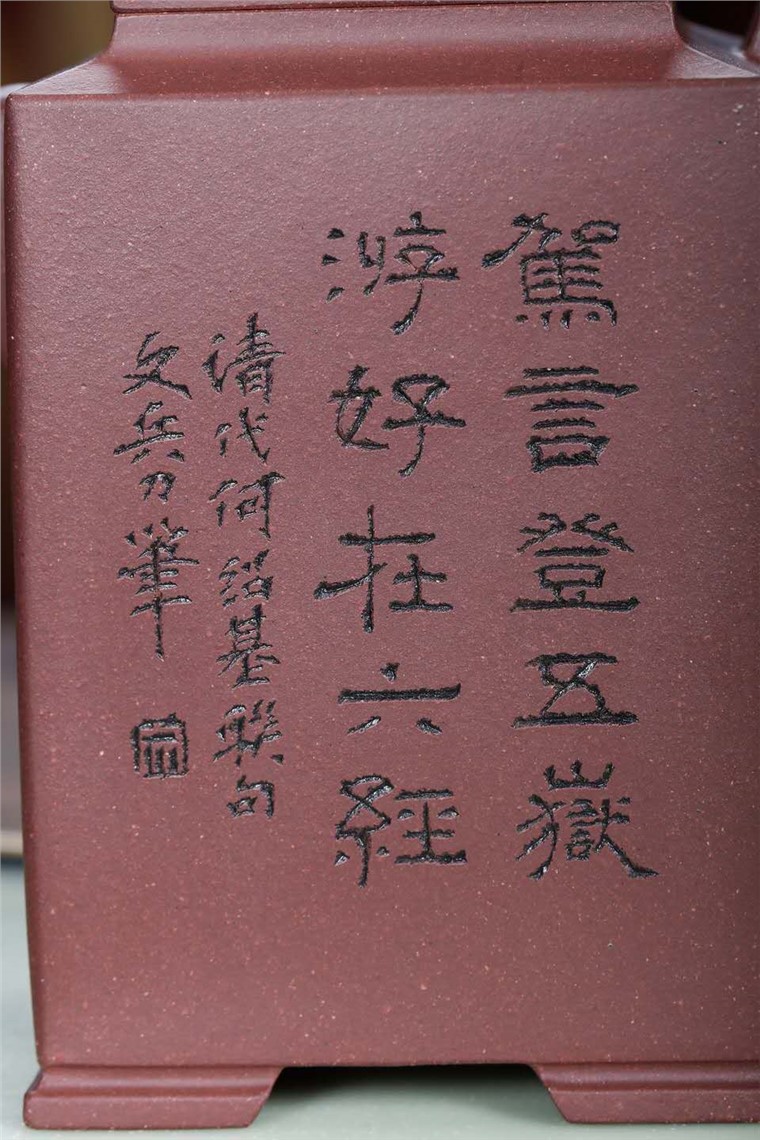 駕言登五嶽
游好在六經
清代何紹基聯句
文兵刀筆